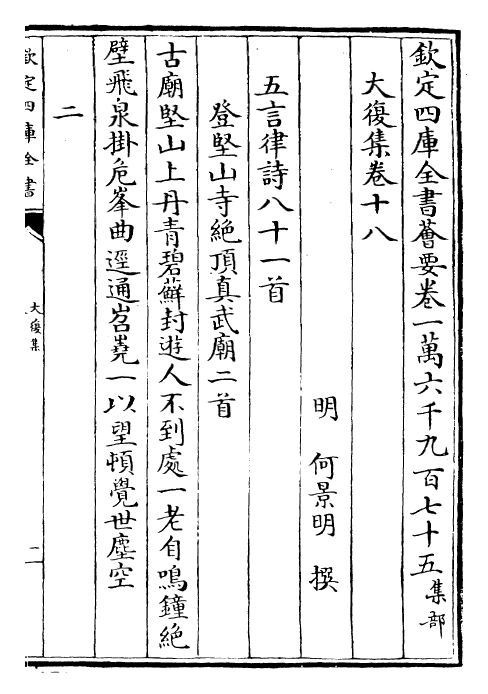 欽定四庫全書薈要卷一萬六千九百七十五集部
大復集卷十八
明 何景明 撰
五言律詩八十一首
登堅山寺絶頂真武廟二首
古廟堅山上丹青碧蘚封遊人不到處一老自鳴鐘絶
壁飛泉掛危峯曲逕通岧嶤一以望頓覺世塵空
二
欽定四庫全書
大復集
二